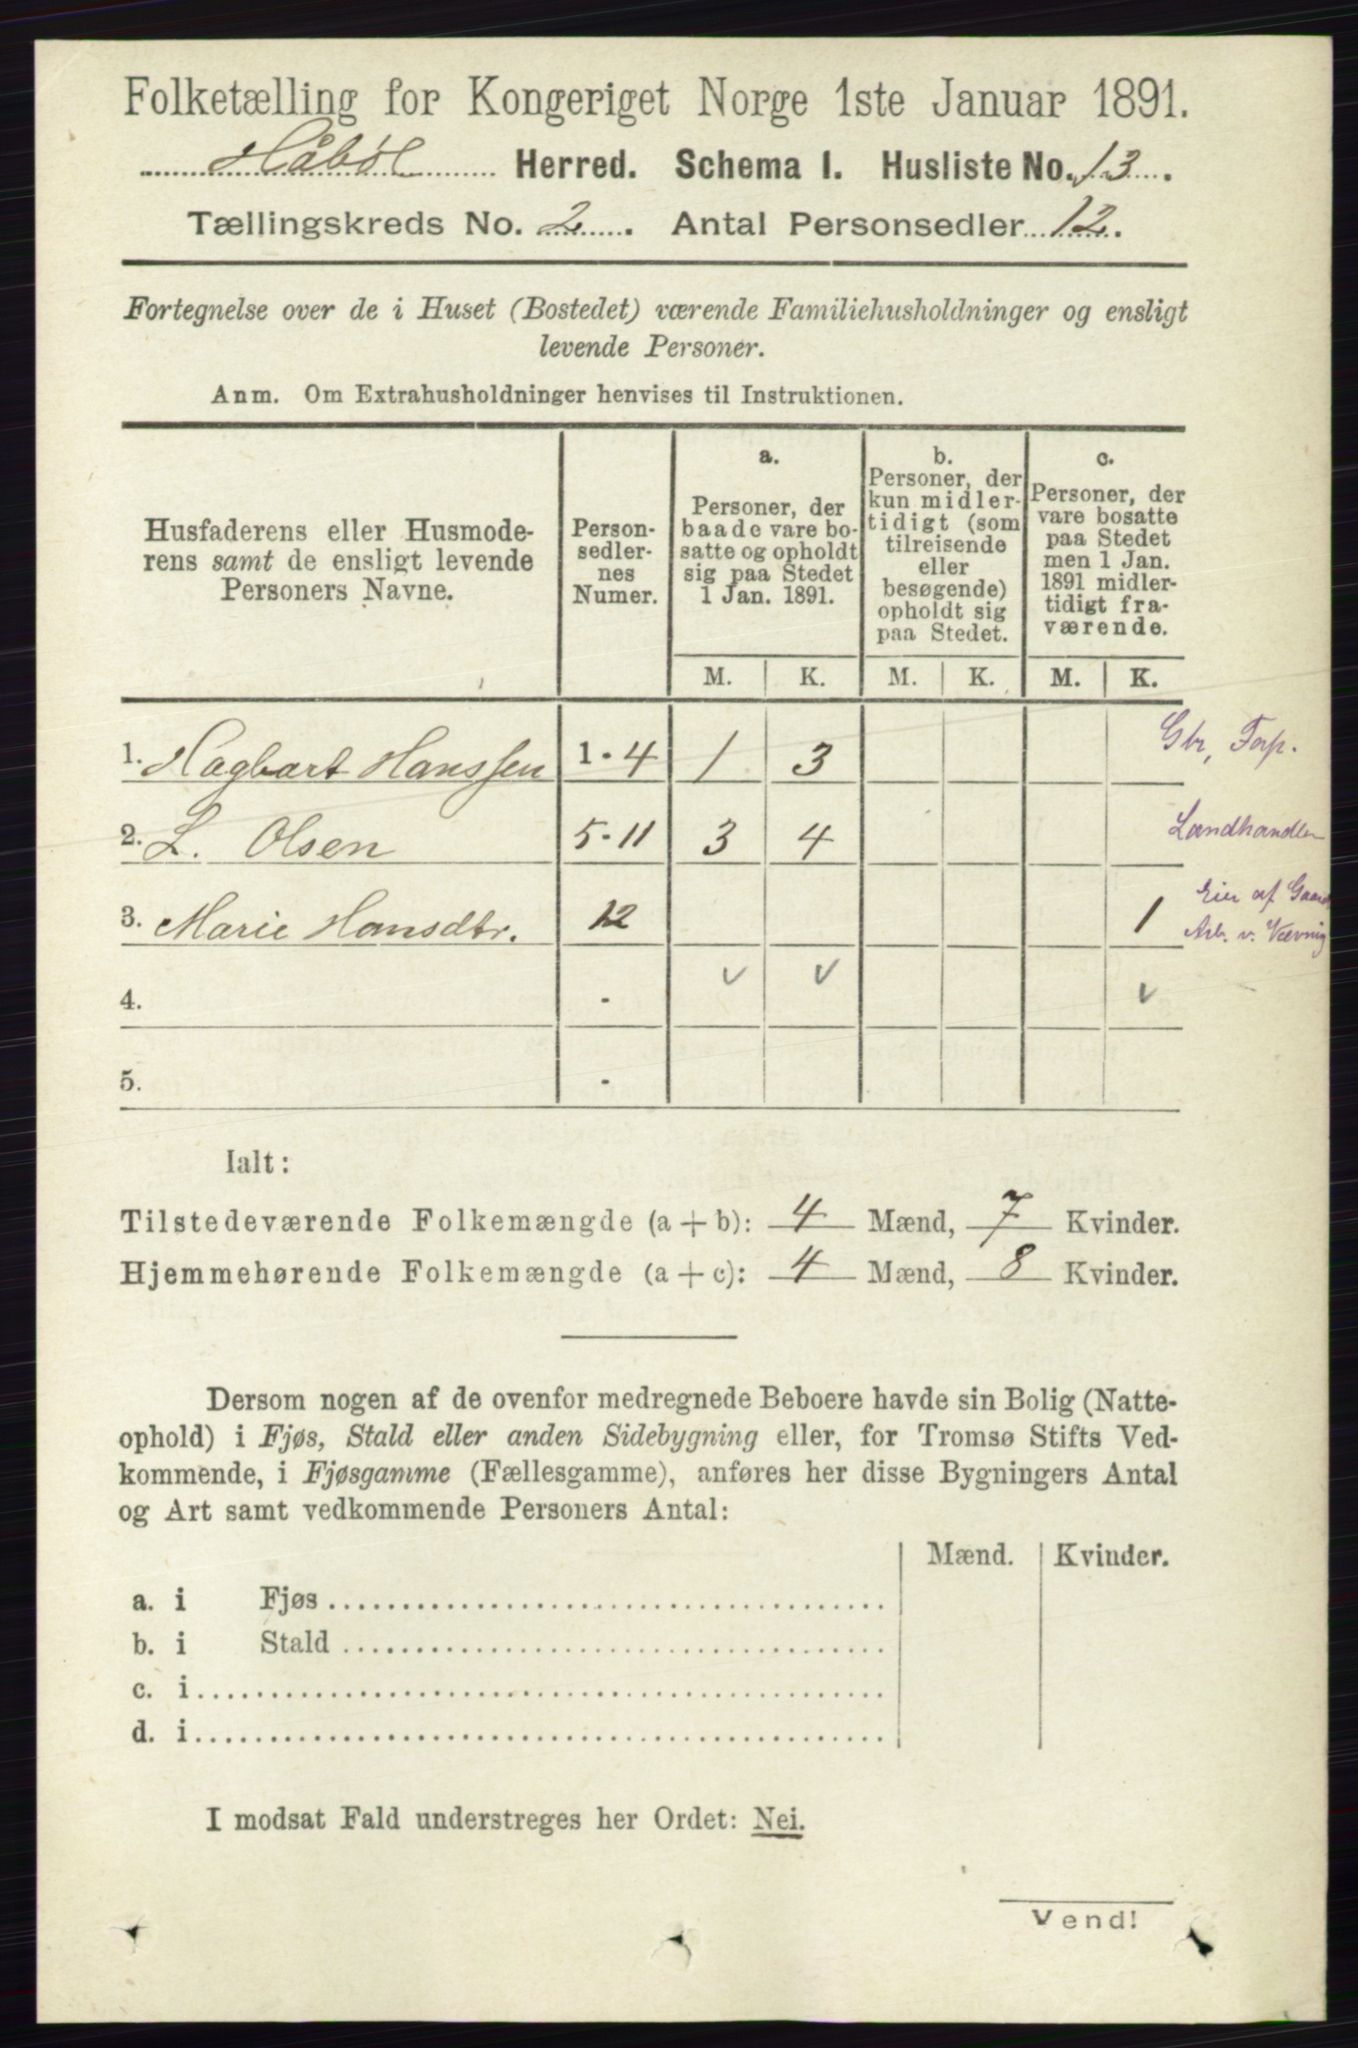 Folketælling for Kongeriget Norge 1ste Januar 1891.
Håbøl Herred. Schema I. Husliste No. 13.
Tællingskreds No. 2. Antal Personsedler 12.
Fortegnelse over de i Huset (Bostedet) værende Familiehusholdninger og ensligt
levende Personer.
Anm. Om Extrahusholdninger henvises til Instruktionen.
Husfaderens eller Husmode-
rens samt de ensligt levende
Personers Navne.
Person-
sedler-
nes
Numer.
a.
Personer, der
baade vare bo-
satte og opholdt
sig paa Stedet
1 Jan. 1891.
b.
Personer, der
kun midler-
tidigt (som
tilreisende
eller
besøgende)
opholdt sig
paa Stedet.
c.
Personer, der
vare bosatte
paa Stedet
men 1 Jan.
1891 midler-
tidigt fra-
værende.
M. K. M. K. M. K.
1. Hagbart Hanssen 1-4 1 3 Gbr, Torp.
2. L. Olsen 5-11 3 4 Landhandler
3. Marie Hansdtr. 12 1 Eier af Gaard
Arb. v. Vævnig
4. -
5. -
Ialt:
Tilstedeværende Folkemængde (a + b): 4 Mænd, 7 Kvinder.
Hjemmehørende Folkemængde (a + c): 4 Mænd, 8 Kvinder.
Dersom nogen af de ovenfor medregnede Beboere havde sin Bolig (Natte-
ophold) i Fjøs, Stald eller anden Sidebygning eller, for Tromsø Stifts Ved-
kommende, i Fjøsgamme (Fællesgamme), anføres her disse Bygningers Antal
og Art samt vedkommende Personers Antal:
Mænd. Kvinder.
a. i Fjøs
b. i Stald
c. i
d. i
I modsat Fald understreges her Ordet: Nei.
Vend!